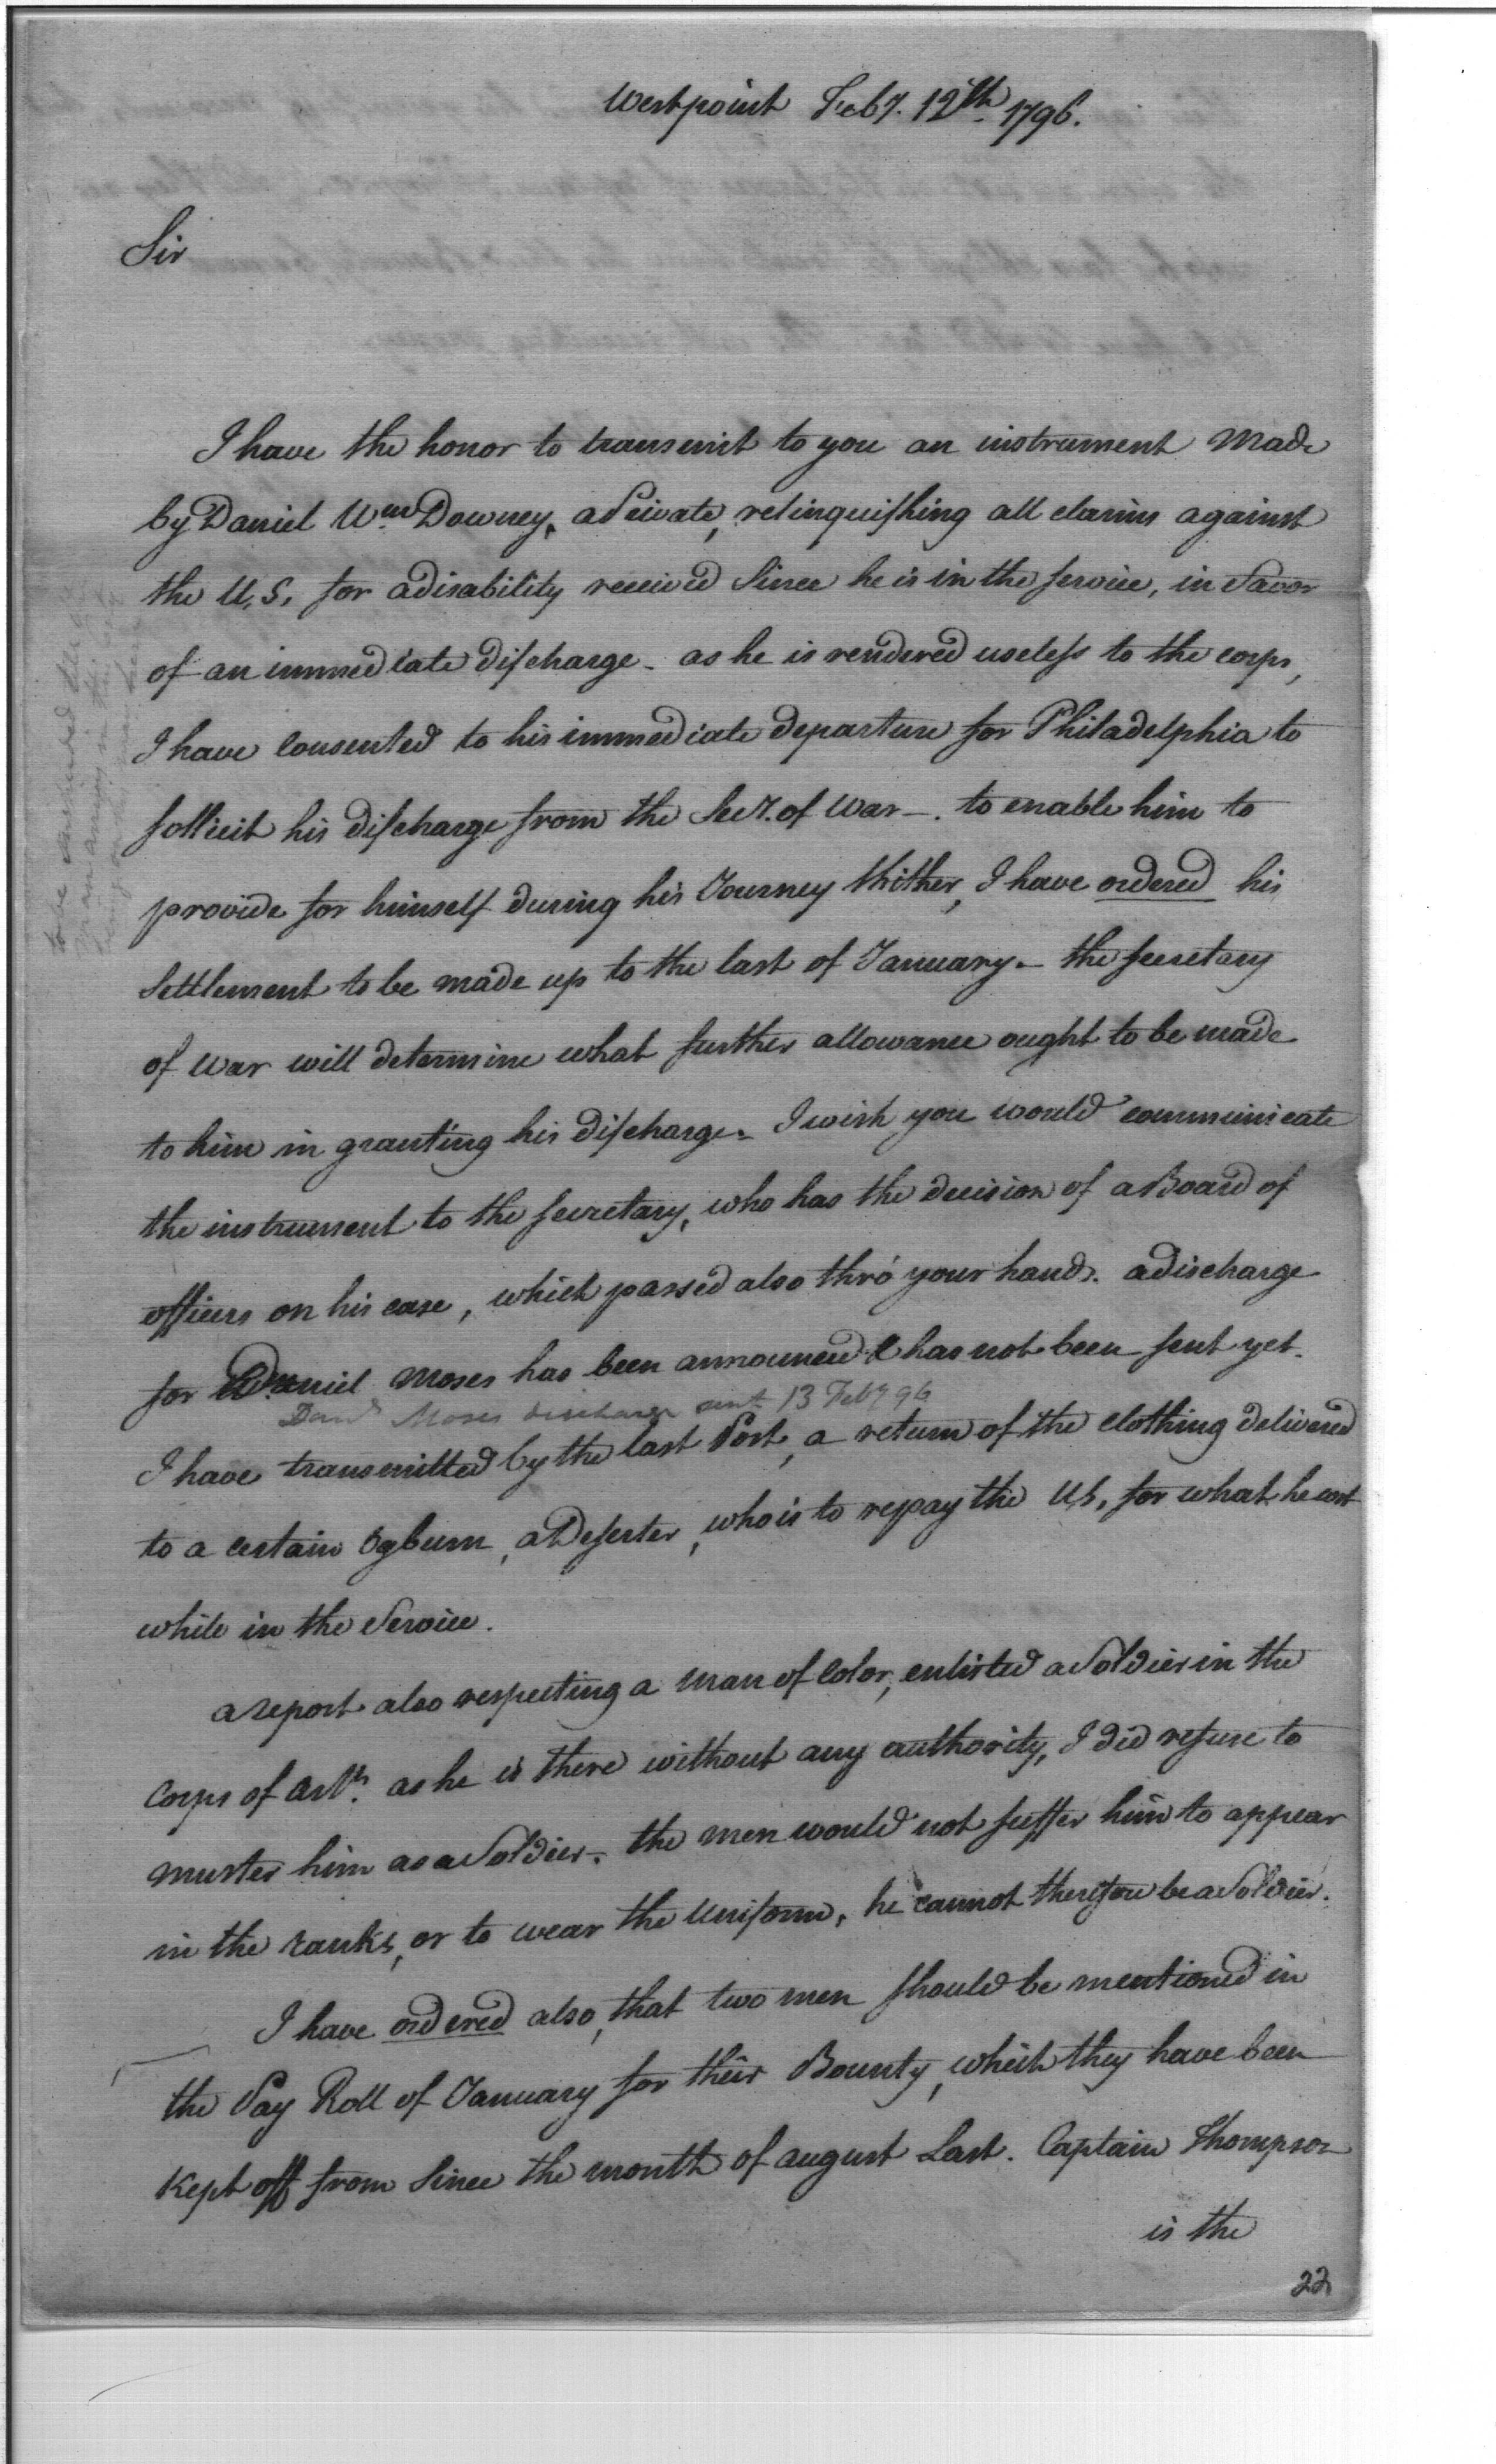 Westpoint Feby. 12th 1796.
Sir
I have the honor to transmit to you an instrument made
by Daniel Wm Downey, a Private, relinquishing all claims against
the U.S. for a disability received Since he is in the service, in Favor
of an immediate discharge - as he is rendered useless to the corps,
I have consented to his immediate departure for Philadelphia to
sollicit his discharge from the Secy. of War -. to enable him to
provide for himself during his Journey thither, I have ordered his
Settlement to be made up to the last of January - the secretary
of war will determine what further allowance ought to be made
to him in granting his discharge. I wish you would communicate
the instrument to the secretary, who has the decision of a Board of
officers on his case, which passed also thro' your hands. a discharge
for Daniel Moses has been announced & has not been sent yet.
Danl Moses discharge sent 13 Feby 96
I have transmitted by the last Post, a return of the clothing delivered
to a certain Ogburn, a Deserter, who is to repay the U.S. for what he cost
while in the Service.
a report also respecting a man of Color, enlisted a Soldier in the
Corps of Arty. as he is there without any authority, I did refuse to
muster him as a Soldier. the men would not suffer him to appear
in the ranks, or to wear the uniform, he cannot therefore be a Soldier.
I have ordered also, that two men should be mentioned in
the Pay Roll of January for their Bounty, which they have been
Kept off from Since the month of august Last. Captain Thompson
is the
22